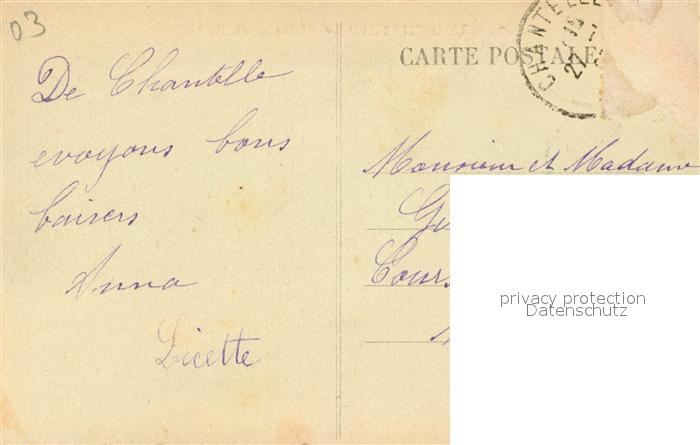 03
CHANTELLE
CARTE POSTALE
De Chantelle
evoyons bons
baisers
Anna
Licette
Monsieur et Madame
Cours
privacy protection
Datenschutz